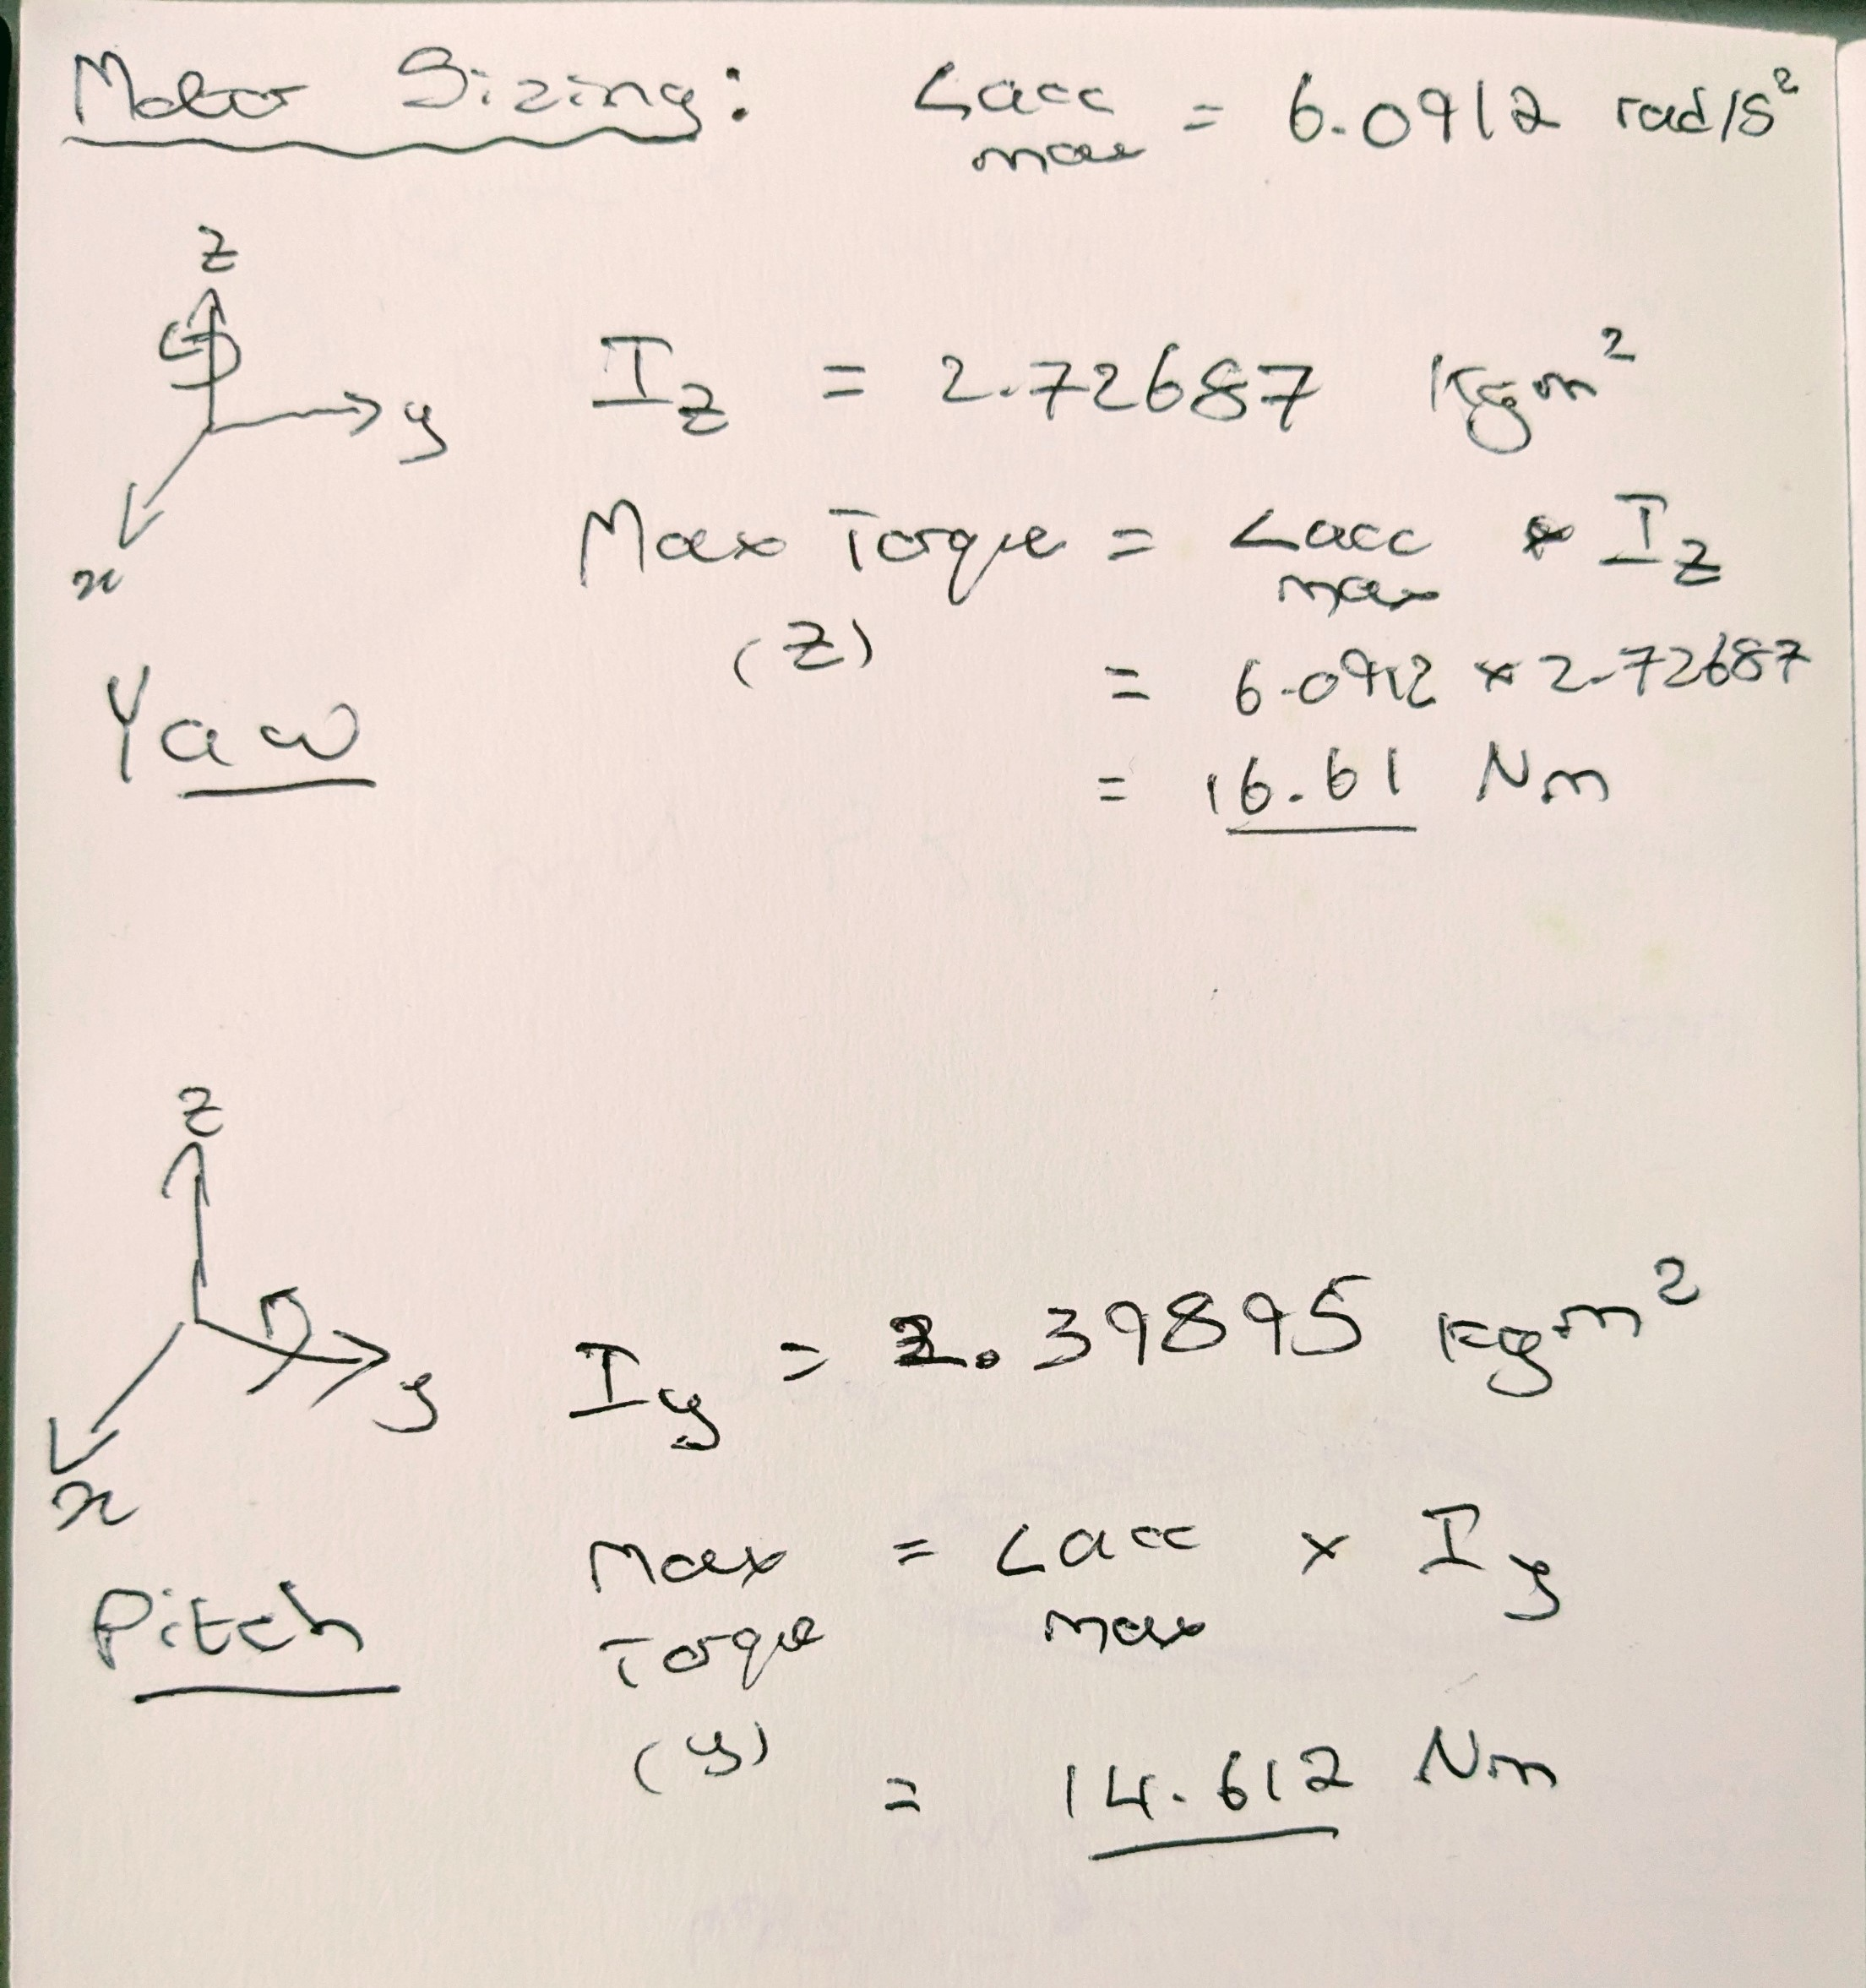 Motor Sizing: ∠acc max = 6.0912 rad/s²
z
y
x
I_z = 2.72687 Kgm²
Max Torque (z) = ∠acc max * I_z
= 6.0912 * 2.72687
Yaw
= 16.61 Nm
z
y
x
I_y = 2.39895 kgm²
Max Torque (y) = ∠acc max × I_y
Pitch
= 14.612 Nm